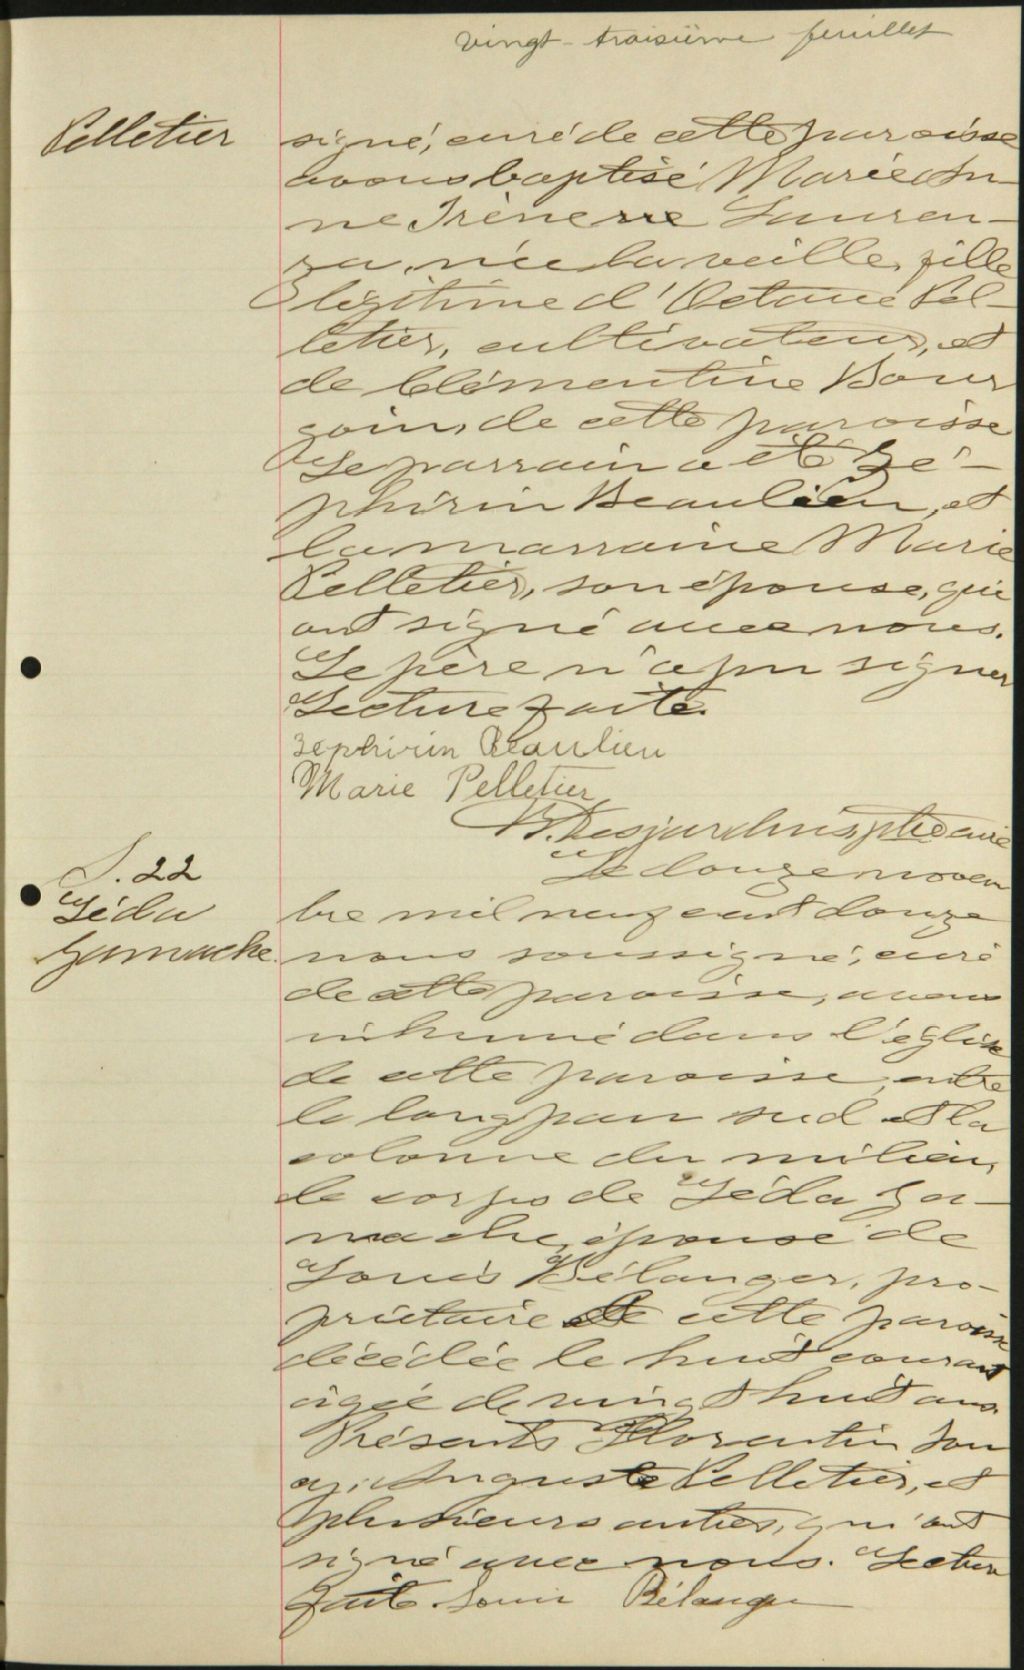 vingt-troisième feuillet
Pelletier
signé, curé de cette paroisse
avons baptisé Marie An-
ne Irène Lauren-
za, née la veille, fille
légitime d'Octave Pel-
letier, cultivateur, et
de Clémentine Bour
goin, de cette paroisse
Le parrain a été Zé-
phirin Beaulieu, et
la marraine Marie
Pelletier, son épouse, qui
ont signé avec nous.
Le père n'a pu signer
Lecture faite.
Zephirin Beaulieu
Marie Pelletier
Desjardins, ptre curé
S. 22
Léda
Gamache.
Le douze novem
bre mil neuf cent douze
nous soussigné, curé
de cette paroisse, avons
inhumé dans l'église
de cette paroisse, entre
le long pan sud et la
colonne du milieu,
le corps de Léda Ga-
mache, épouse de
Louis Bélanger, pro-
priétaire de cette paroisse
décédée le huit courant
âgée de vingt huit ans
Présents Florentin
Auguste Pelletier, et
plusieurs autres, qui ont
signé avec nous. Lecture
faite. Louis Bélanger